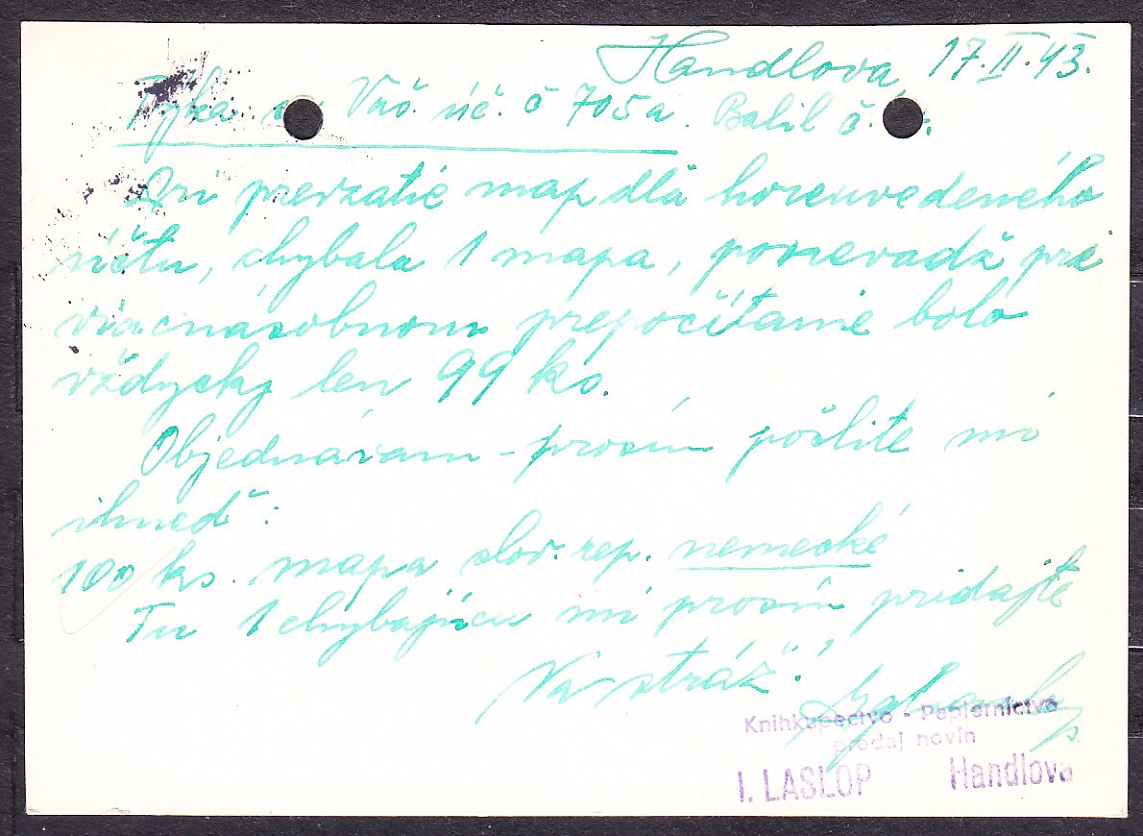 Handlova 17.II.43.
Týka sa Váš. úč. č 705a. Balil č.
Pri prevzatie map dľa horeuvedeného
účtu, chybala 1 mapa, ponevadž pri
viacnásobnom prepočítanie bolo
vždycky len 99 ks.
Objednávam - prosím pošlite mi
ihneď:
100 ks. mapa slov. rep. nemecké
Tu 1 chybajúcu mi prosím pridajte
Na stráž!
Knihkupectvo - Papiernictvo
predaj novín
I. LASLOP Handlova